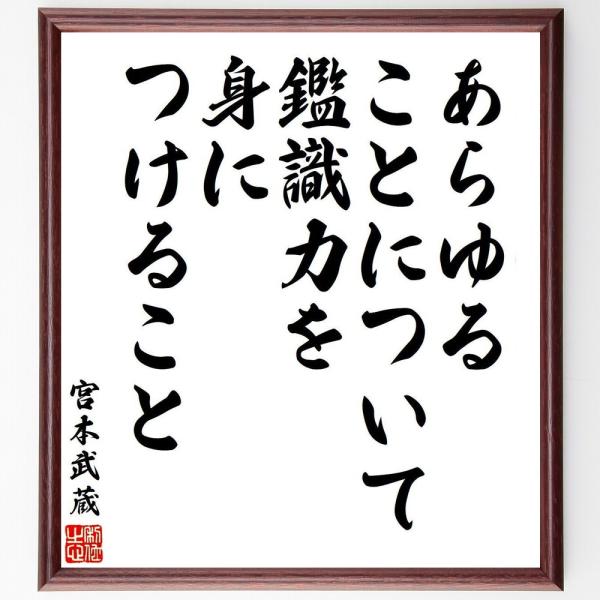 あらゆる
ことについて
鑑識力を
身に
つけること
宮本武蔵